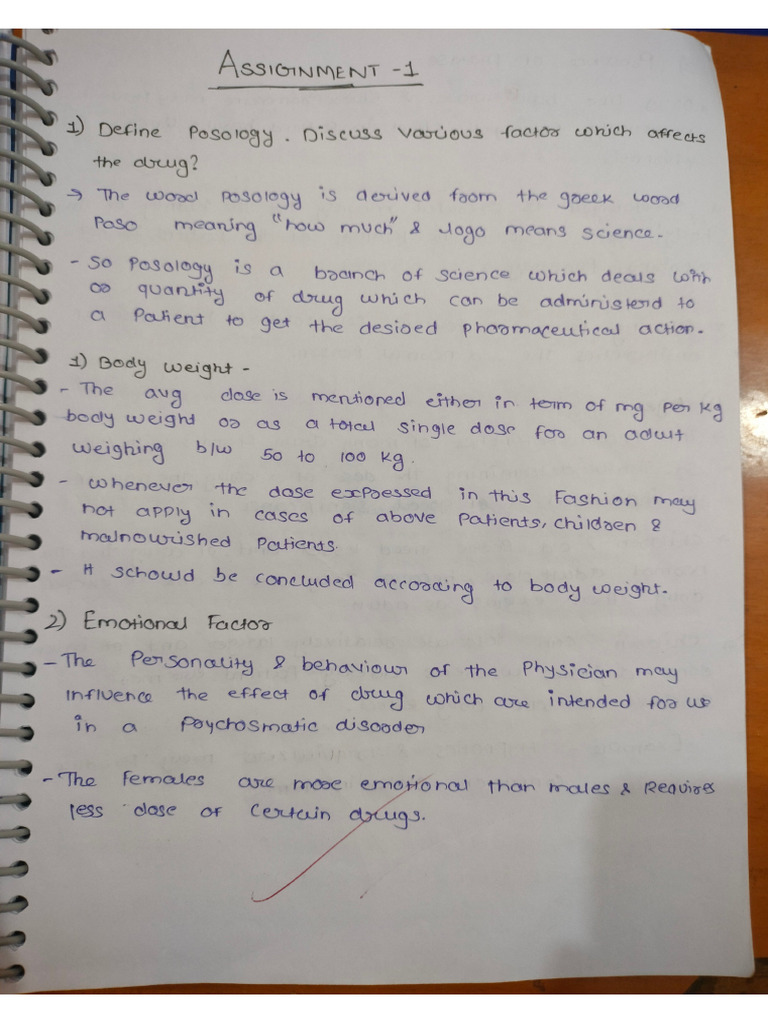 ASSIGNMENT -1
1) Define Posology. Discuss various factor which affects
the drug?
→ The word posology is derived from the greek word
Poso meaning "how much" & logo means science.
- So Posology is a branch of science which deals with
or quantity of drug which can be administerd to
a Patient to get the desired pharmaceutical action.
1) Body weight -
- The avg dose is mentioned either in term of mg per kg
body weight or as a total single dose for an adult
weighing b/w 50 to 100 kg.
- whenever the dose expressed in this Fashion may
not apply in cases of above Patients, children &
malnourished Patients.
- It schowd be concluded according to body weight.
2) Emotional Factor
- The Personality & behaviour of the Physician may
influence the effect of drug which are intended for us
in a Psychosmatic disorder
- The females are more emotional than males & Requires
less dose of certain drugs.